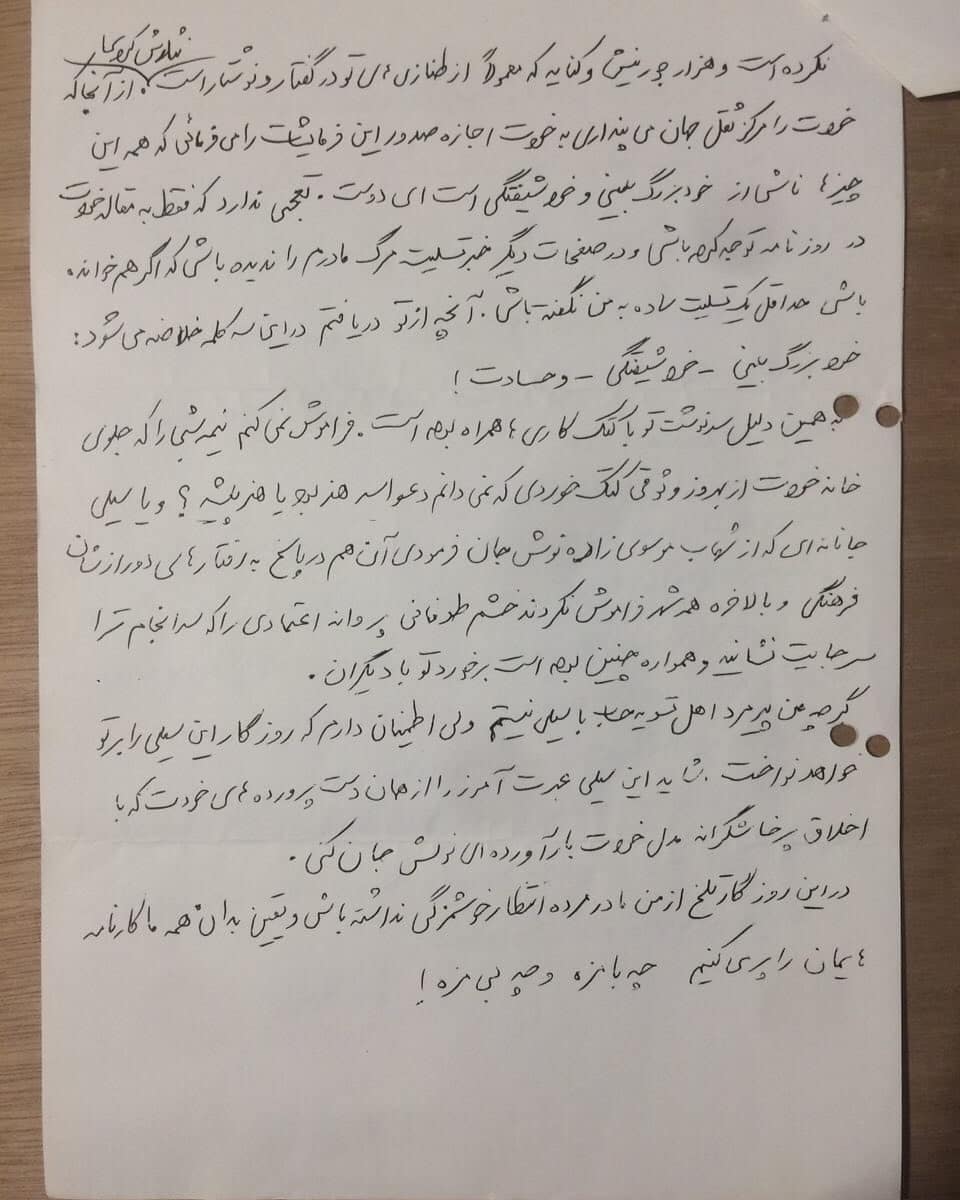 تراوش کرده
نکرده است و هزار جور نیش و کنایه که معمولاً از طنازی های تو در گفتار و نوشتار است. از آنجا که
خودت را مرکز ثقل جهان می پنداری به خودت اجازه صدور این فرمایشات را می فرمائی که همه این
چیزها ناشی از خود بزرگ بینی و خودشیفتگی است ای دوست. تعجبی ندارد که فقط به مقاله خودت
در روزنامه توجه کرده باشی و در صفحات دیگر خبر تسلیت مرگ مادرم را ندیده باشی که اگر هم خوانده
باشی حداقل یک تسلیت ساده به من نگفته باشی. آنچه از تو دریافتم در این سه کلمه خلاصه می شود:
خود بزرگ بینی - خودشیفتگی - و حسادت!
به همین دلیل سرنوشت تو با کتک کاری ها همراه بوده است. فراموش نمی کنم نیمه شبی را که جلوی
خانه خودت از بهروز وثوقی کتک خوردی که نمی دانم دعوا سر هنر بود یا هنرپیشه؟ و یا سیلی
جانانه ای که از شهاب موسوی زاده نوش جان فرمودی آن هم در پاسخ به رفتارهای دور از شان
فرهنگی و بالاخره همه شهر فراموش نکردند خشم طوفانی پروانه اعتمادی را که سرانجام ترا
سر جایت نشانید و همواره چنین بوده است برخورد تو با دیگران.
گرچه من پیرمرد اهل تسویه حساب با سیلی نیستم ولی اطمینان دارم که روزگار این سیلی را بر تو
خواهد نواخت. شاید این سیلی عبرت آموز را از همان دست پرورده های خودت که با
اخلاق پرخاشگرانه مدل خودت بار آورده ای نوش جان کنی.
در این روزگار تلخ از من مادر مرده انتظار خوشمزگی نداشته باش و یقین بدان همه ما کارنامه
هایمان را پر می کنیم چه با مزه و چه بی مزه!